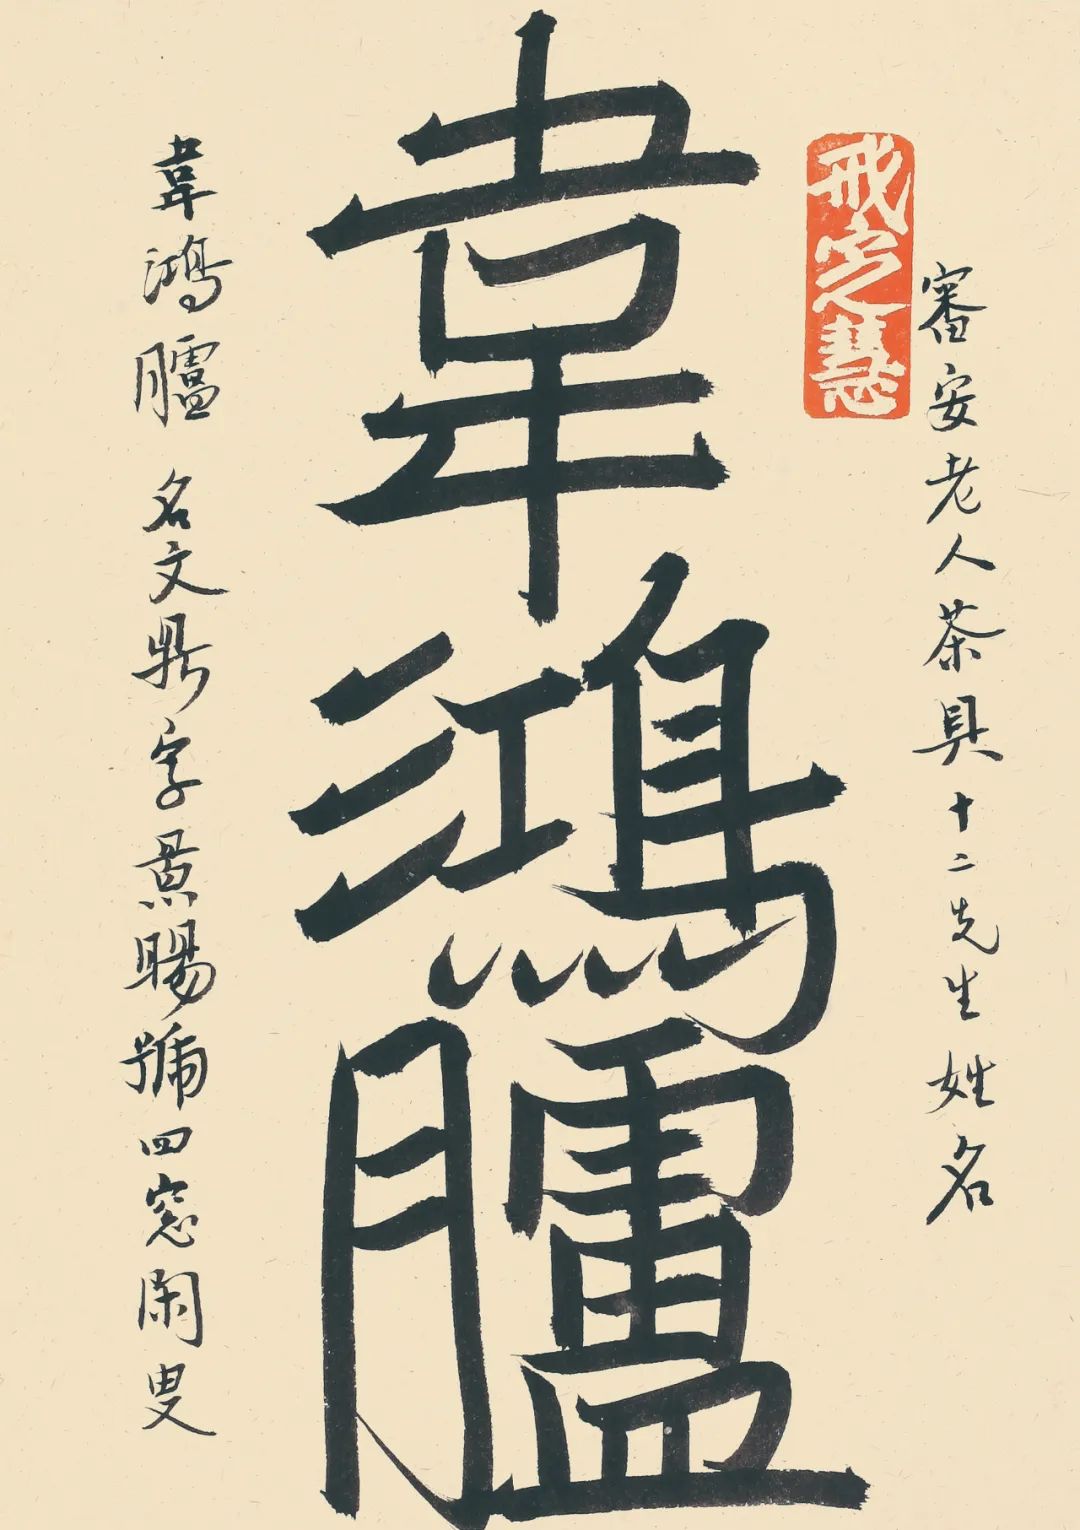 審安老人茶具十二先生姓名
戒定慧
韋鴻臚
韋鴻臚 名文鼎字景暘號四窓閑叟